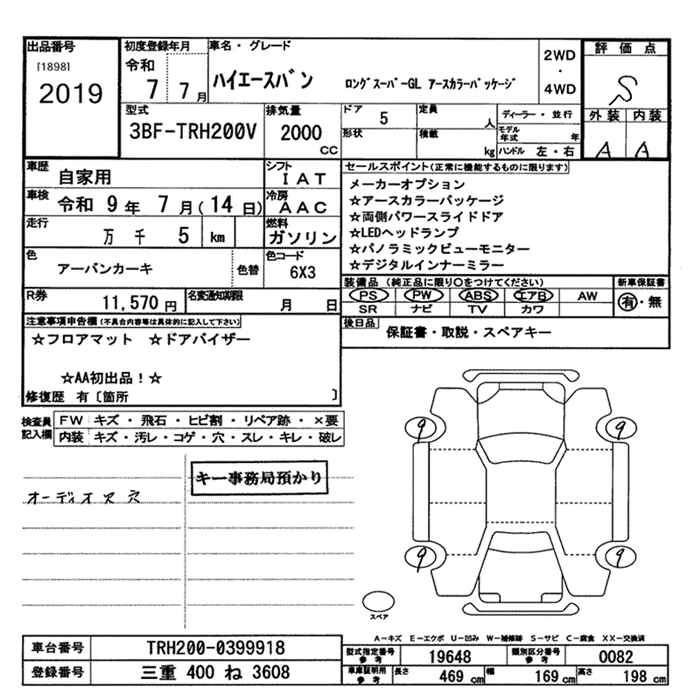 出品番号
[1898]
2019
初度登録年月
令和
7 7月
車名・グレード
ハイエースバン ロングスーパーGL アースカラーパッケージ
2WD
・
4WD
評価点
S
外装 内装
A A
型式
3BF-TRH200V
排気量
2000
cc
ドア
5
形状
定員
人
積載
kg
ディーラー・並行
モデル年式 年
ハンドル 左・右
車歴
自家用
シフト
IAT
車検
令和 9年 7月(14日)
冷房
AAC
走行
万 千 5 km
燃料
ガソリン
色
アーバンカーキ
色替
色コード
6X3
R券
11,570円
名変通知期限
月 日
セールスポイント(正常に機能するものに限ります)
メーカーオプション
☆アースカラーパッケージ
☆両側パワースライドドア
☆LEDヘッドランプ
☆パノラミックビューモニター
☆デジタルインナーミラー
装備品(純正品に限り○をつけてください)
新車保証書
PS PW ABS エアB AW
SR ナビ TV カワ
有・無
後日品
保証書・取説・スペアキー
注意事項申告欄(不具合内容等は具体的に記入して下さい)
☆フロアマット ☆ドアバイザー
☆AA初出品!☆
修復歴 有〔箇所 〕
検査員記入欄
FW キズ・飛石・ヒビ割・リペア跡・×要
内装 キズ・汚レ・コゲ・穴・スレ・キレ・破レ
キー事務局預かり
オーディオマス穴
9 9
9 9
スペア
A-キズ E-エクボ U-凹み W-補修跡 S-サビ C-腐食 XX-交換済
車台番号
TRH200-0399918
登録番号
三重 400 ね 3608
型式指定番号参考
19648
類別区分番号参考
0082
車庫証明用参考
長さ 469cm 幅 169cm 高さ 198cm